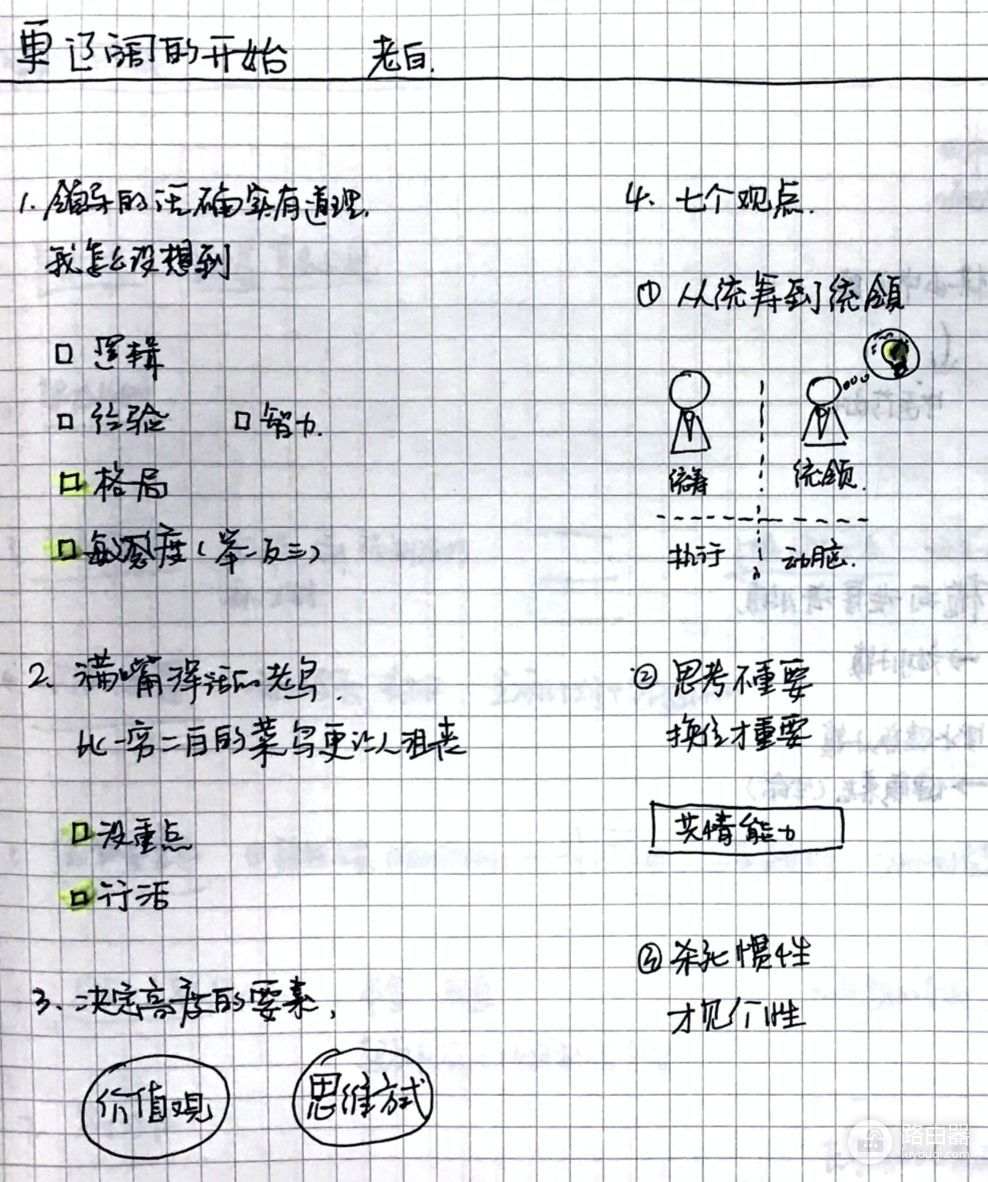 更辽阔的开始 老白.
1. 领导的话确实有道理,
我怎么没想到
□ 逻辑
□ 经验 □ 智力.
□ 格局
□ 敏感度(举一反三)
2. 满嘴行话的老鸟.
比一穷二白的菜鸟更让人沮丧
□ 没重点
□ 行活
3. 决定高度的要素,
价值观 思维方式
4. 七个观点.
① 从统筹到统领
统筹 统领.
执行 动脑.
② 思考不重要
换位才重要
共情能力
③ 杀死惯性
才见个性
路由器
luyouqi.com